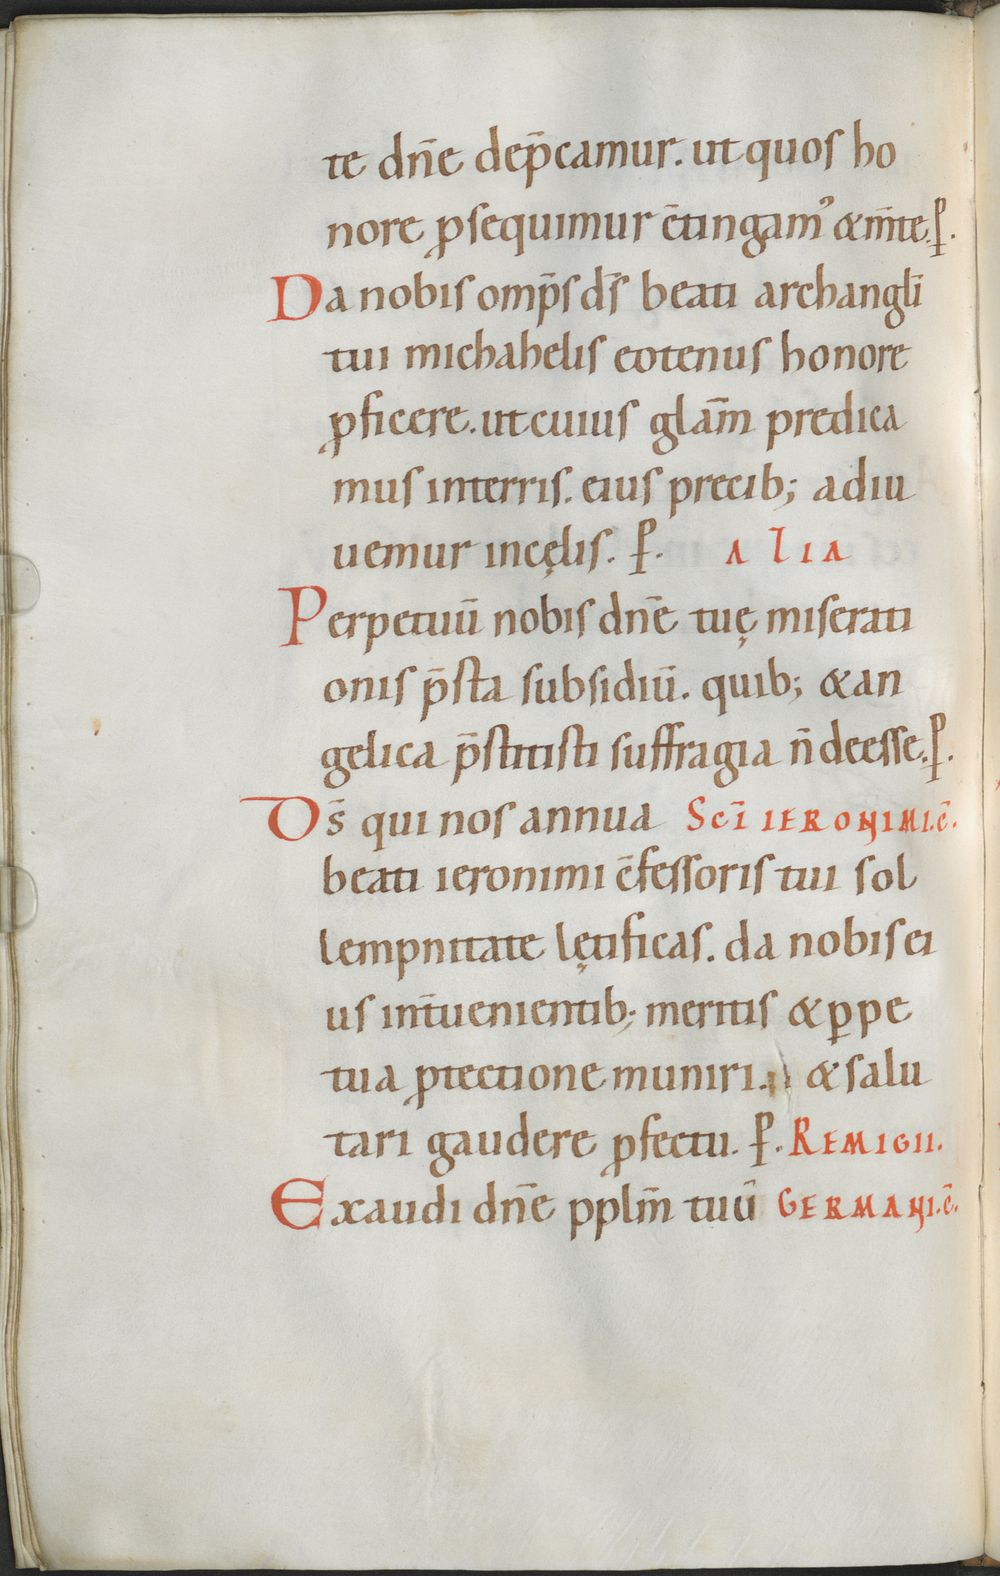 te dn̄e dep̄camur. ut quos ho
nore ꝓsequimur c̄tingam᾿ & m̄te. ꝑ.
Da nobis omp̄s ds̄ beati archangli̅
tui michahelis eotenus honore
ꝓficere. ut cuius glām predica
mus interris. eius precib; adiu
uemur incęlis. ꝑ. ALIA
Perpetuū nobis dn̄e tuę miserati
onis p̄sta subsidiū. quib; & an
gelica p̄stitisti suffragia n̄ deesse. ꝑ.
Ds̄ qui nos annua SCĪ IERONIMI. C̄.
beati ieronimi c̄fessoris tui sol
lempnitate lętificas. da nobis ei
us int̄uenientib; meritis & ꝑpe
tua ꝓtectione muniri. & salu
tari gaudere ꝓfectu. ꝑ. REMIGII.
Exaudi dn̄e pplm̄ tuū GERMANI. C̄.